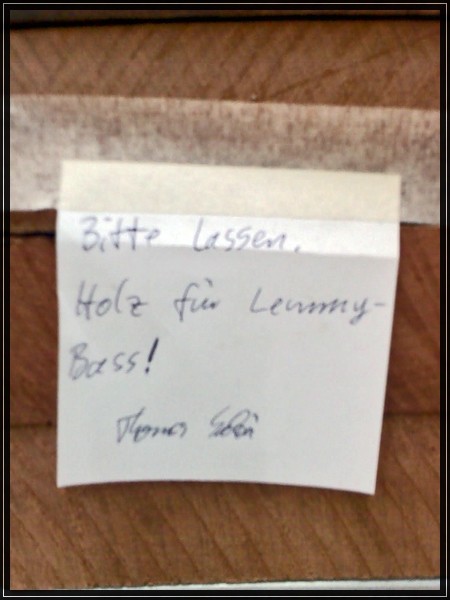 Bitte lassen.
Holz für Lemmy-
Bass!
Thomas